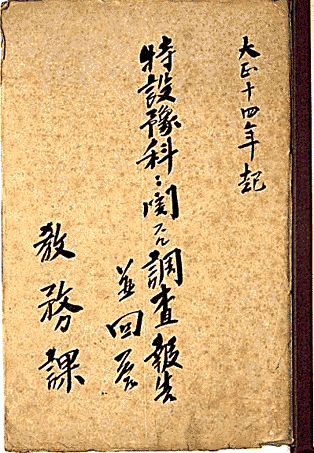 大正十四年起
特設豫科ニ関スル調査報告
並回答
教務課